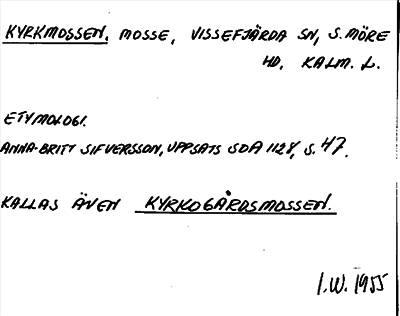 KYRKMOSSEN, MOSSE, VISSEFJÄRDA SN, S. MÖRE
HD, KALM. L.
ETYMOLOGI.
ANNA-BRITT SIFVERSSON, UPPSATS SOA 1128, S. 47.
KALLAS ÄVEN KYRKOGÅRDSMOSSEN.
I.W. 1955